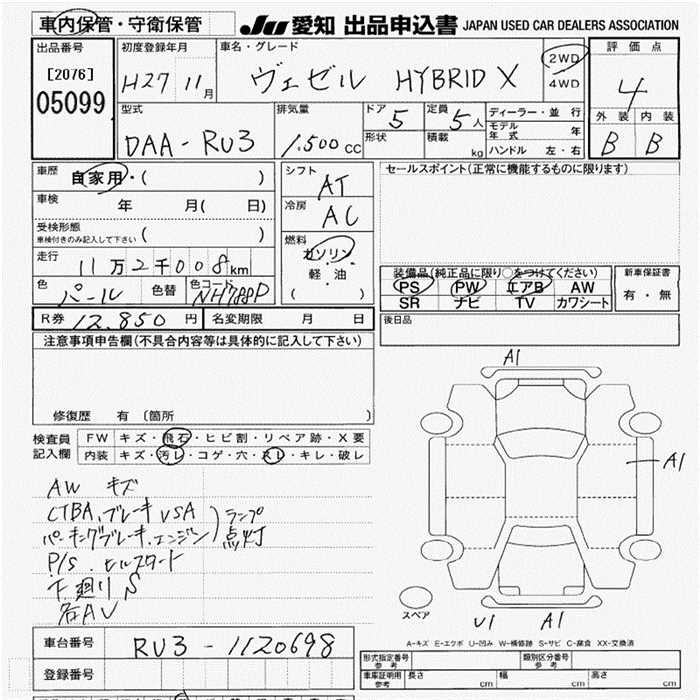 車内保管・守衛保管
JU 愛知 出品申込書 JAPAN USED CAR DEALERS ASSOCIATION
出品番号 初度登録年月 車名・グレード 評価点
[2076] H27 11月 ヴェゼル HYBRID X 2WD 4WD 4
05099 外装 内装
型式 排気量 ドア 5 定員 5人 ディーラー・並行 B B
DAA-RU3 1.500cc 形状 積載 kg モデル年式 年
ハンドル 左・右
車歴 自家用・( ) シフト AT セールスポイント(正常に機能するものに限ります)
車検 年 月( 日) 冷房 AC
受検形態 車検付きのみ記入して下さい ( )
燃料 ガソリン・軽・油 ( )
走行 11万2千008km
色 パール 色替 色コード NH788P
装備品(純正品に限り○をつけてください) 新車保証書
PS PW エアB AW 有・無
SR ナビ TV カワシート
R券 12,850円 名変期限 月 日 後日品
注意事項申告欄(不具合内容等は具体的に記入して下さい)
修復歴 有〔箇所 〕
検査員記入欄 FW キズ・飛石・ヒビ割・リペア跡・X要
内装 キズ・汚レ・コゲ・穴・スレ・キレ・破レ
A1
A1
AW キズ
CTBA、ブレーキ VSA
パーキングブレーキ、エンジン ランプ点灯
P/S、ヒルスタート
下廻り S
各AU
スペア
U1 A1
A-キズ E-エクボ U-凹み W-補修跡 S-サビ C-腐食 XX-交換済
車台番号 RU3-1120698
形式指定番号 参考 類別区分番号 参考
登録番号
車庫証明用 参考 長さ cm 幅 cm 高さ cm